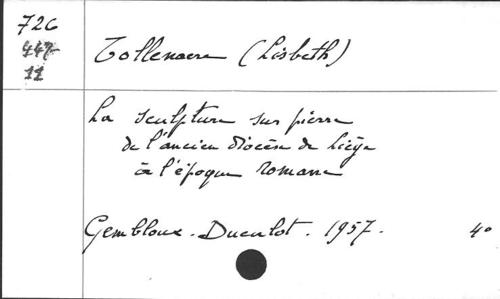 726
447
11
Tollenaere (Lisbeth)
La sculpture sur pierre
de l'ancien diocèse de Liège
à l'époque romane
Gembloux. Duculot. 1957. 4°